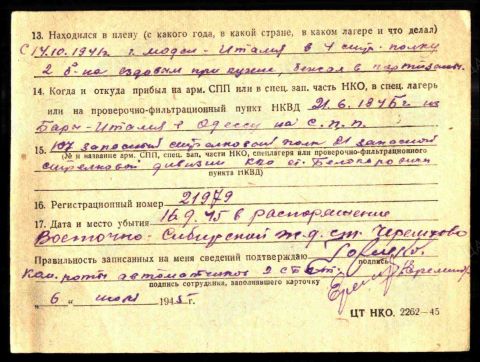 13. Находился в плену (с какого года, в какой стране, в каком лагере и что делал)
С 14.10.1941 г. Италия в 4 полку
2 б-на ездовым при кухне, бежал в партизаны.
14. Когда и откуда прибыл на арм. СПП или в спец. зап. часть НКО, в спец. лагерь
или на проверочно-фильтрационный пункт НКВД 21.6.1945 г из
Бари-Италия в Одессу на С.П.П.
15. 107 запасной стрелковой полк 21 запасной
(№ и название арм. СПП, спец. зап. части НКО, спецлагеря или проверочно-фильтрационного
стрелковой дивизии
пункта НКВД)
16. Регистрационный номер 21979
17. Дата и место убытия 16.9.45 в распоряжение
Восточно-Сибирской ж.д. ст. Черемхово
Правильность записанных на меня сведений подтверждаю
подпись
Ком. роты автоматчиков
подпись сотрудника, заполнившего карточку
6 июля 1945 г.
ЦТ НКО. 2262—45